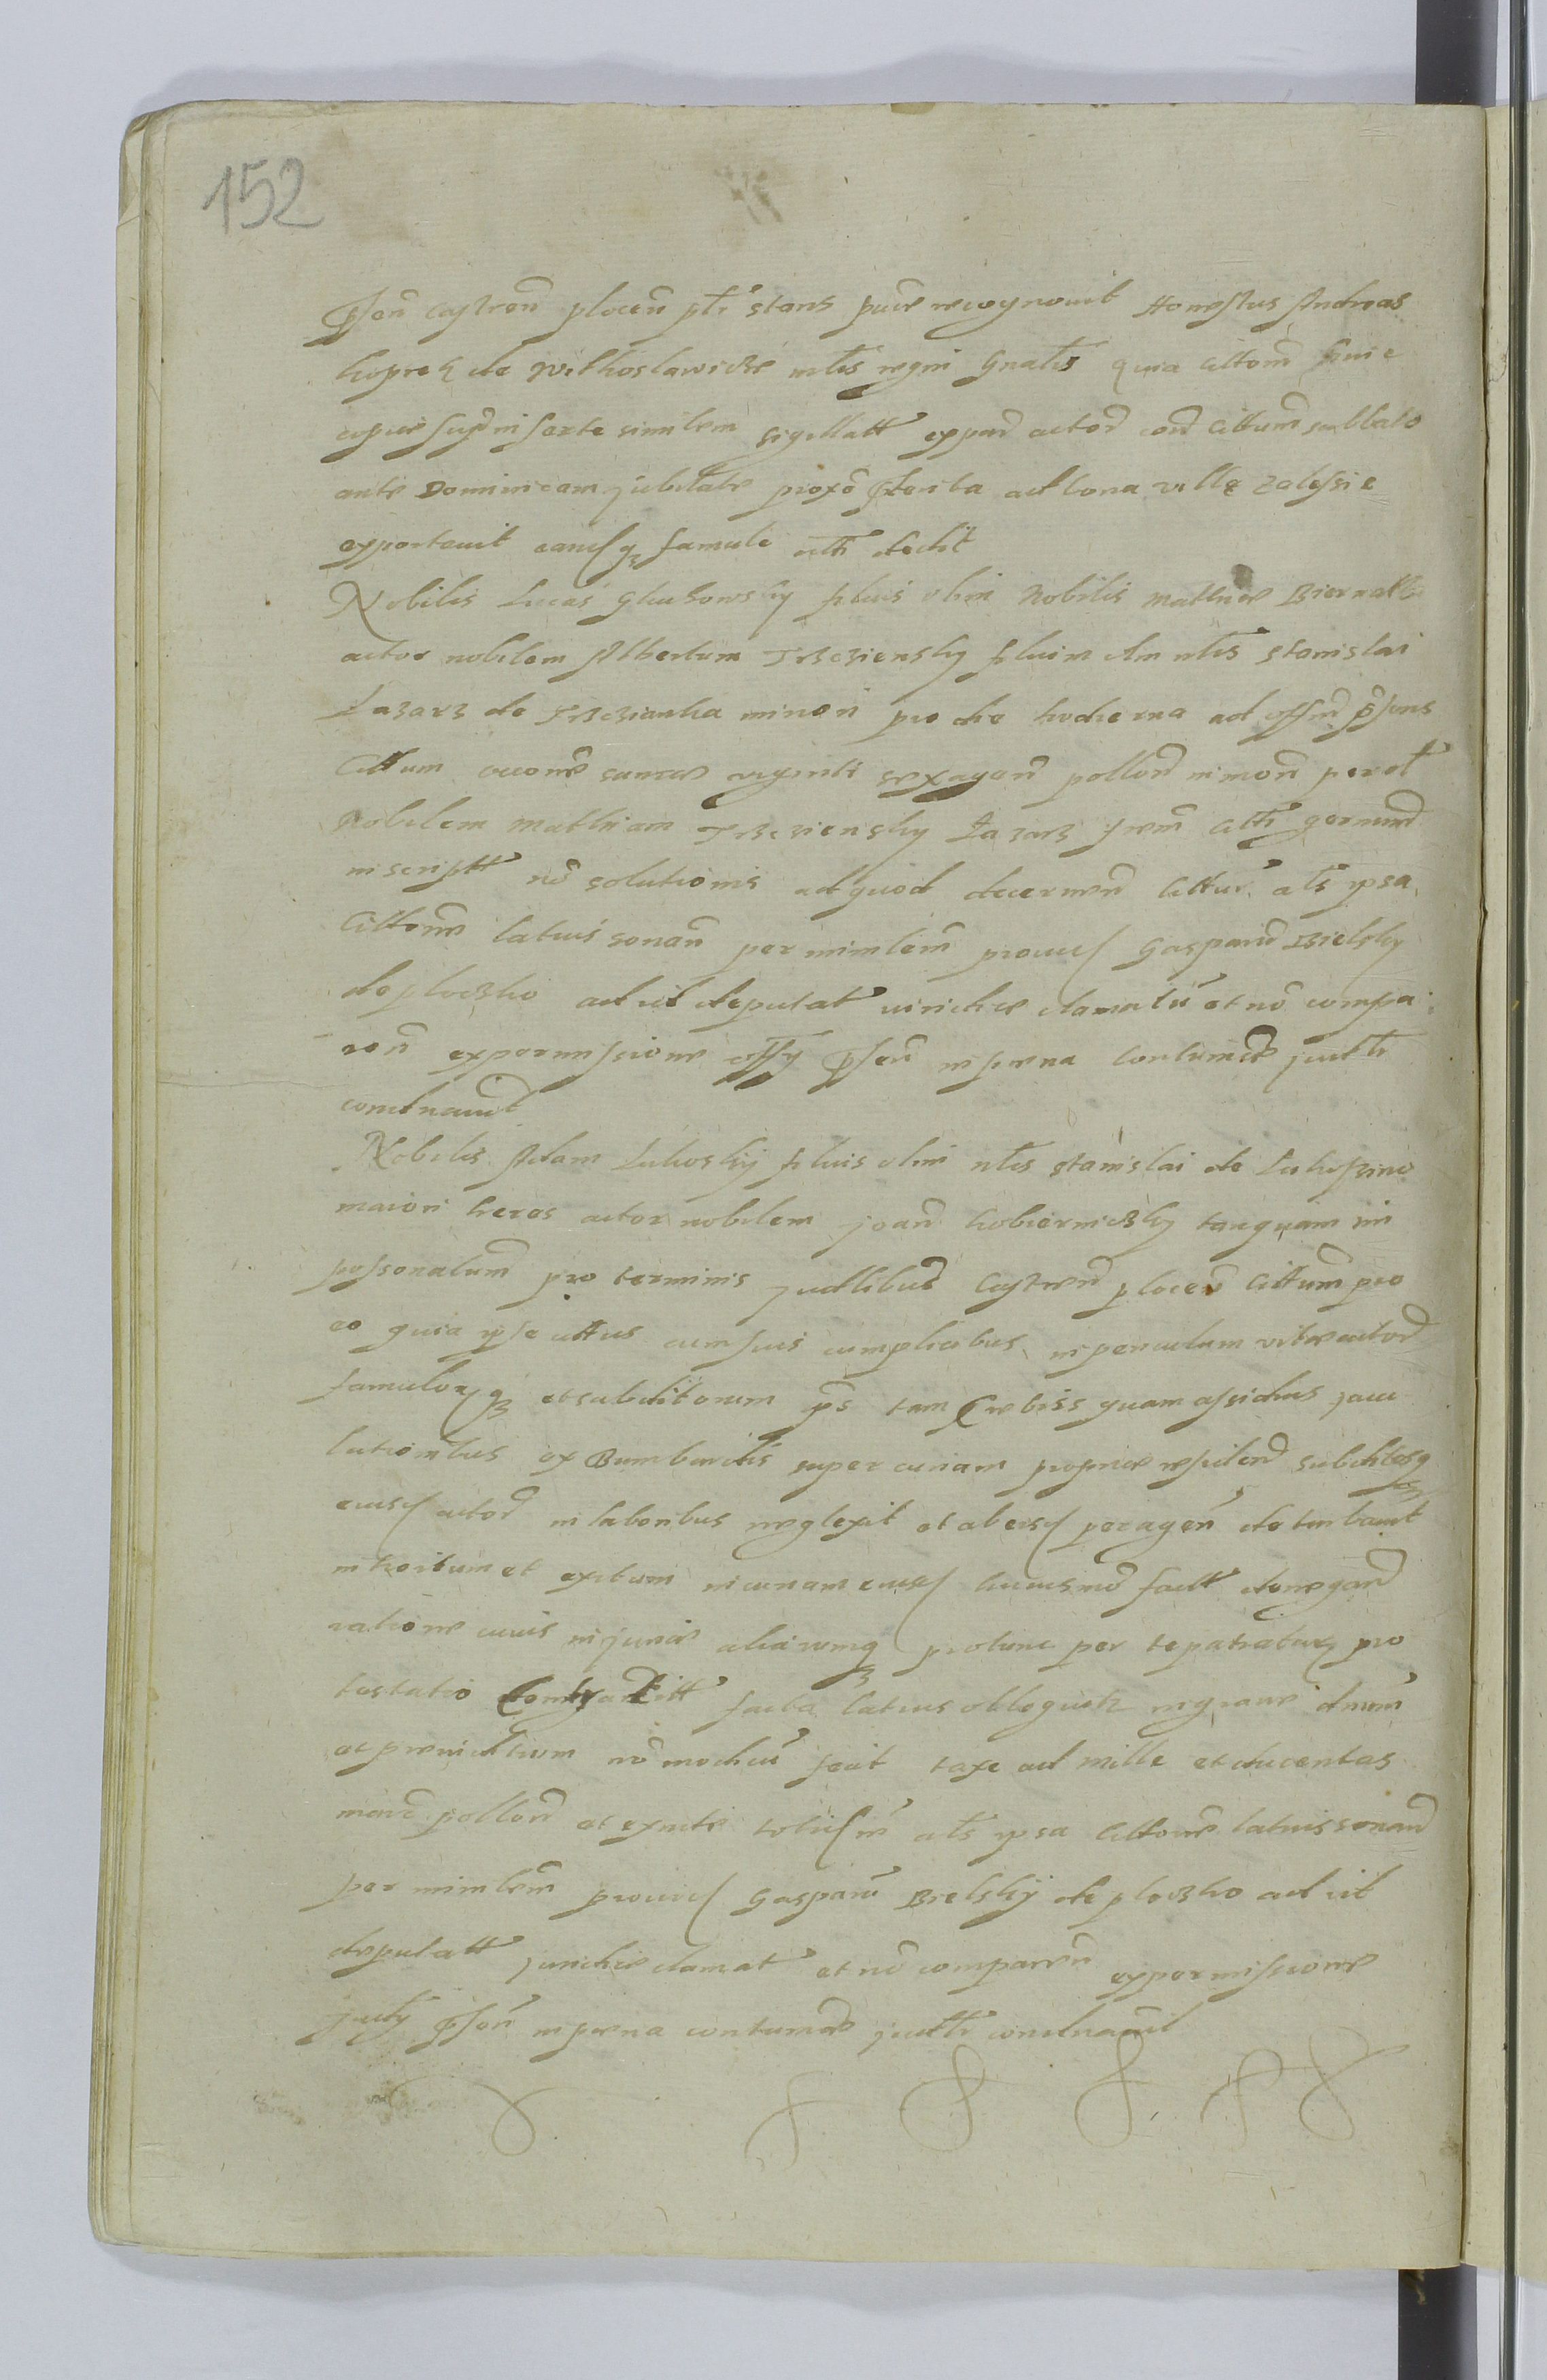 152
Psen castren plocen plr stans pure recognovit Honestus Andreas
koprek de Wilkoslawicze mlis regni Gnalis quia litton huic
copie superinserte similem sigillatt ex par actor con citatum sabbato
ante Dominicam jubilate proxo pterita ad bona ville zalessie
exportavit eamq famule cttr dedit
Nobilis Lucas Gluchowsky filius olim Nobilis Mathie Biernatt
actor nobilem Albertum Trzcziensky filium olim nlis Stanislai
Lazarz de Trzczianka minori pro die hodierna ad offm psens
Cittum occone summe viginti sexagen pollon in mon per olt
Nobilem Mathiam Trzcziensky Lazarz frem citti germm
inscriptt no solutionis ad quod decernen cittur als ipsa
Cittone latius sonan per minlem provid Gasparu Bielsky
de ploczko ad id deputat iuridice clamatu et no compa
ren ex permissione offy psen in pena contumat juditr
condnavit
Nobilis Adam Lukosky filius olim nlis Stanislai de Lukoszino
maiori heres actor nobilem joan kobiernicky tanquam im
possonatum pro terminis judlibus castren plocen cittum pro
eo quia ipse cttus cum suis complicibus in periculum vite actor
famulorq et subditorum ips tam Crebiss quam assiduis jacu
lationibus ex Bumbardis super curiam proprie residen subditosq
eiusd actor in laboribus neglexit et ab eisd peragen deturbavit
introitum et exitum in curiam eiusd huiusmo factt denegan
ratione cuius injurie aliarumq protunc per te patratarz pro
testatio facta latius obloquitr in grave dmm
et preiuditium no modicu seut taxe ad mille et ducentas
marc pollon et exinte toliusm als ipsa Cittone latius sonan
per minlem provid Gasparu Bielsky de ploczko ad id
deputatt juridice clamat et no comparen ex permissione
judy psen in pena contumae juditr condnavit